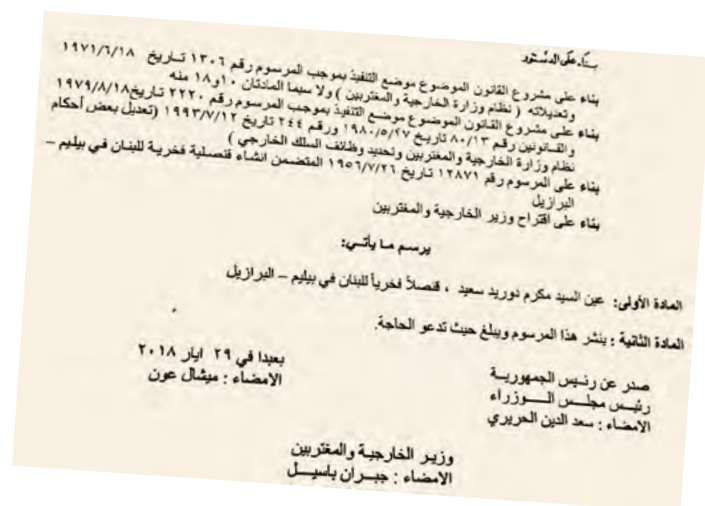 بناء على الدستور
بناء على مشروع القانون الموضوع موضع التنفيذ بموجب المرسوم رقم ١٣٠٦ تاريخ ١٩٧١/٦/١٨
وتعديلاته ( نظام وزارة الخارجية والمغتربين ) ولا سيما المادتان ١٠ و ١٨ منه
بناء على مشروع القانون الموضوع موضع التنفيذ بموجب المرسوم رقم ٢٢٢٠ تاريخ ١٩٧٩/٨/١٨
والقانونين رقم ٨٠/١٣ تاريخ ١٩٨٠/٥/٢٧ ورقم ٢٤٤ تاريخ ١٩٩٣/٧/١٢ (تعديل بعض أحكام
نظام وزارة الخارجية والمغتربين وتحديد وظائف السلك الخارجي )
بناء على المرسوم رقم ١٢٨٧١ تاريخ ١٩٥٦/٧/٢٦ المتضمن انشاء قنصلية فخرية للبنان في بيليم –
البرازيل
بناء على اقتراح وزير الخارجية والمغتربين
يرسم ما يأتي:
المادة الأولى: عين السيد مكرم دوريد سعيد ، قنصلاً فخرياً للبنان في بيليم – البرازيل
المادة الثانية : ينشر هذا المرسوم ويبلغ حيث تدعو الحاجة.
بعبدا في ٢٩ ايار ٢٠١٨
الامضاء : ميشال عون
صدر عن رئيس الجمهورية
رئيس مجلس الوزراء
الامضاء : سعد الدين الحريري
وزير الخارجية والمغتربين
الامضاء : جبران باسيل